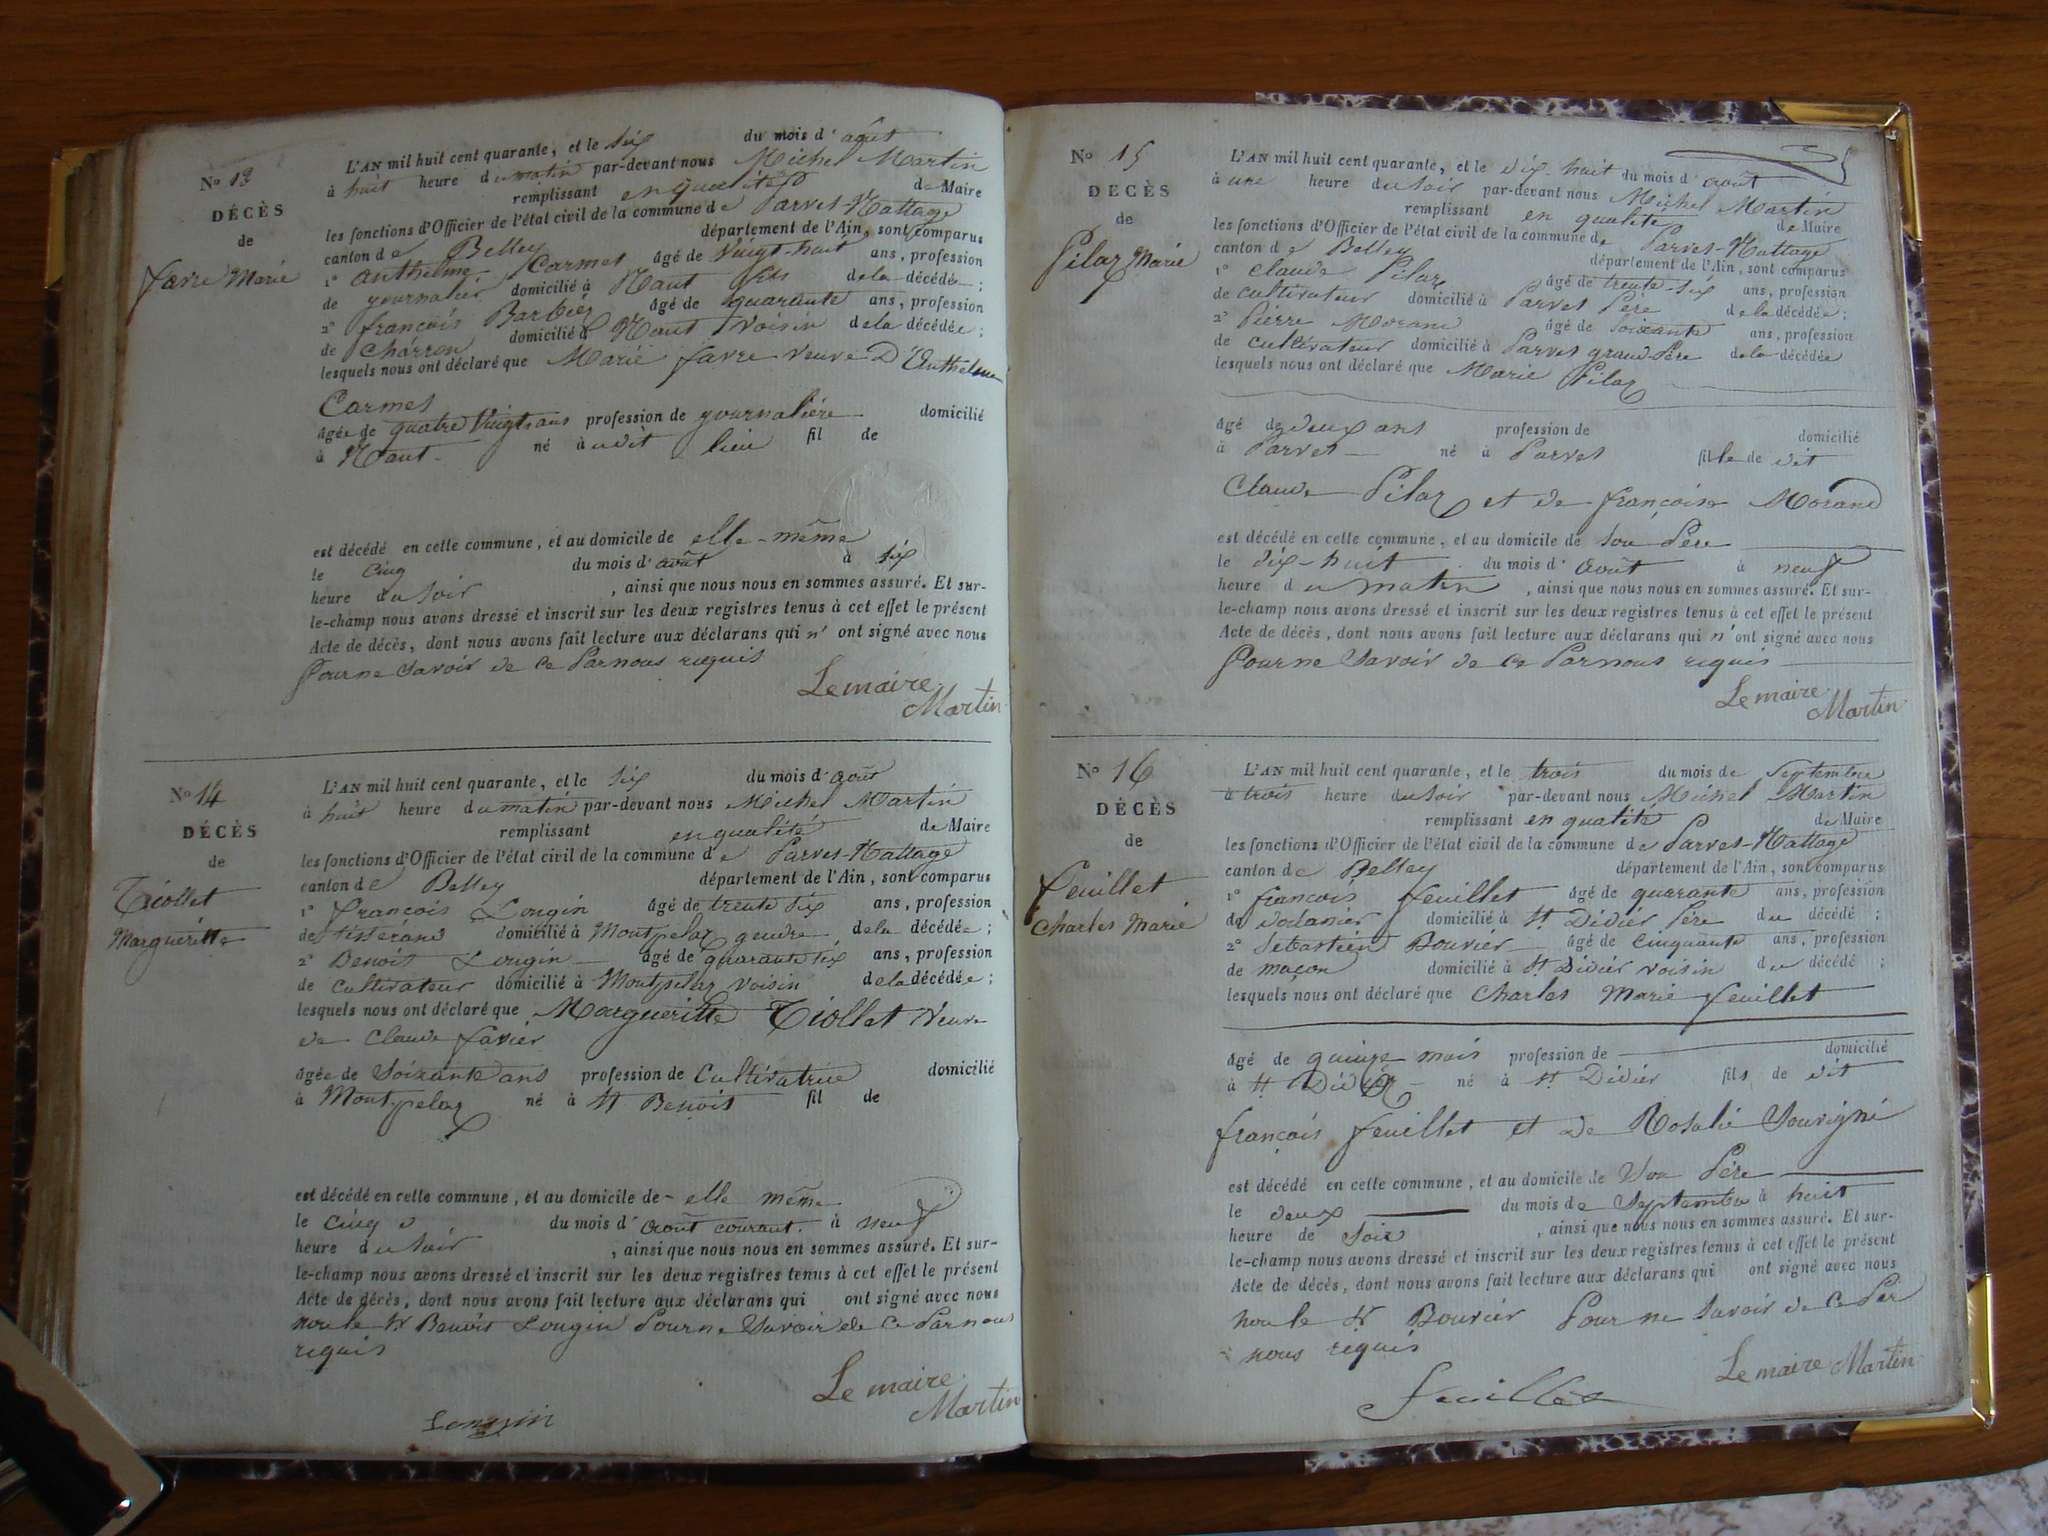 No 13
DÉCÈS
de
favre Marie
L'AN mil huit cent quarante, et le six du mois d'août
à huit heure du matin par-devant nous Michel Martin
remplissant en qualité de Maire
les fonctions d'Officier de l'état civil de la commune de Parves-Nattage
canton de Belley département de l'Ain, sont comparus
1° anthelme Carmet âgé de vingt-huit ans, profession
de journalier domicilié à Nant fils de la décédée ;
2° françois Barbier âgé de quarante ans, profession
de Charron domicilié à Nant voisin de la décédée ;
lesquels nous ont déclaré que Marie favre veuve D'Anthelme
Carmet
âgée de quatre vingts ans profession de journalière domicilié
à Nant né à udit lieu fil de
est décédé en cette commune, et au domicile de elle-même
le cinq du mois d'août à six
heure du soir , ainsi que nous nous en sommes assuré. Et sur-
le-champ nous avons dressé et inscrit sur les deux registres tenus à cet effet le présent
Acte de décès, dont nous avons fait lecture aux déclarans qui n' ont signé avec nous
Pour ne Savoir de ce Par nous requis
Le maire
Martin
No 14
DÉCÈS
de
Tiollet
Margueritte
L'AN mil huit cent quarante, et le six du mois d'août
à huit heure du matin par-devant nous Michel Martin
remplissant en qualité de Maire
les fonctions d'Officier de l'état civil de la commune de Parves-Nattage
canton de Belley département de l'Ain, sont comparus
1° françois Longin âgé de trente six ans, profession
de tisserand domicilié à Montpelaz gendre de la décédée ;
2° Benoit Longin âgé de quarante six ans, profession
de cultivateur domicilié à Montpelaz voisin de la décédée ;
lesquels nous ont déclaré que Margueritte Tiollet veuve
de Claude favier
âgée de Soixante ans profession de Cultivatrice domicilié
à Montpelaz né à St Benoit fil de
est décédé en cette commune, et au domicile de elle même
le cinq du mois d'août courant à neuf
heure du soir , ainsi que nous nous en sommes assuré. Et sur-
le-champ nous avons dressé et inscrit sur les deux registres tenus à cet effet le présent
Acte de décès, dont nous avons fait lecture aux déclarans qui ont signé avec nous
non le Sr Benoit Longin Pour ne Savoir de ce Par nous
requis
Le maire
Martin
No 15
DÉCÈS
de
Pilaz Marie
L'AN mil huit cent quarante, et le dix-huit du mois d'août
à une heure du soir par-devant nous Michel Martin
remplissant en qualité de Maire
les fonctions d'Officier de l'état civil de la commune de Parves-Nattage
canton de Belley département de l'Ain, sont comparus
1° Claude Pilaz âgé de trente-six ans, profession
de cultivateur domicilié à Parves Père de la décédée ;
2° Pierre Morand âgé de soixante ans, profession
de cultivateur domicilié à Parves grand-Père de la décédée
lesquels nous ont déclaré que Marie Pilaz
âgé de deux ans profession de domicilié
à Parves né à Parves fille de dit
Claude Pilaz et de françoise Morand
est décédé en cette commune, et au domicile de son Père
le dix-huit du mois d'août à neuf
heure du matin , ainsi que nous nous en sommes assuré. Et sur-
le-champ nous avons dressé et inscrit sur les deux registres tenus à cet effet le présent
Acte de décès, dont nous avons fait lecture aux déclarans qui n' ont signé avec nous
Pour ne Savoir de ce Par nous requis
Le maire
Martin
No 16
DÉCÈS
de
feuillet
Charles Marie
L'AN mil huit cent quarante, et le trois du mois de Septembre
à trois heure du soir par-devant nous Michel Martin
remplissant en qualité de Maire
les fonctions d'Officier de l'état civil de la commune de Parves-Nattage
canton de Belley département de l'Ain, sont comparus
1° françois feuillet âgé de quarante ans, profession
de domicilié à St Didier Père du décédé ;
2° Sébastien Bouvier âgé de cinquante ans, profession
de maçon domicilié à St Didier voisin du décédé ;
lesquels nous ont déclaré que Charles Marie feuillet
âgé de quinze mois profession de domicilié
à St Didier né à St Didier fils de dit
françois feuillet et de Rosalie
est décédé en cette commune, et au domicile de Son Père
le deux du mois de Septembre à huit
heure de soir , ainsi que nous nous en sommes assuré. Et sur-
le-champ nous avons dressé et inscrit sur les deux registres tenus à cet effet le présent
Acte de décès, dont nous avons fait lecture aux déclarans qui ont signé avec nous
non le Sr Bouvier Pour ne Savoir de ce Par
nous requis
Le maire Martin